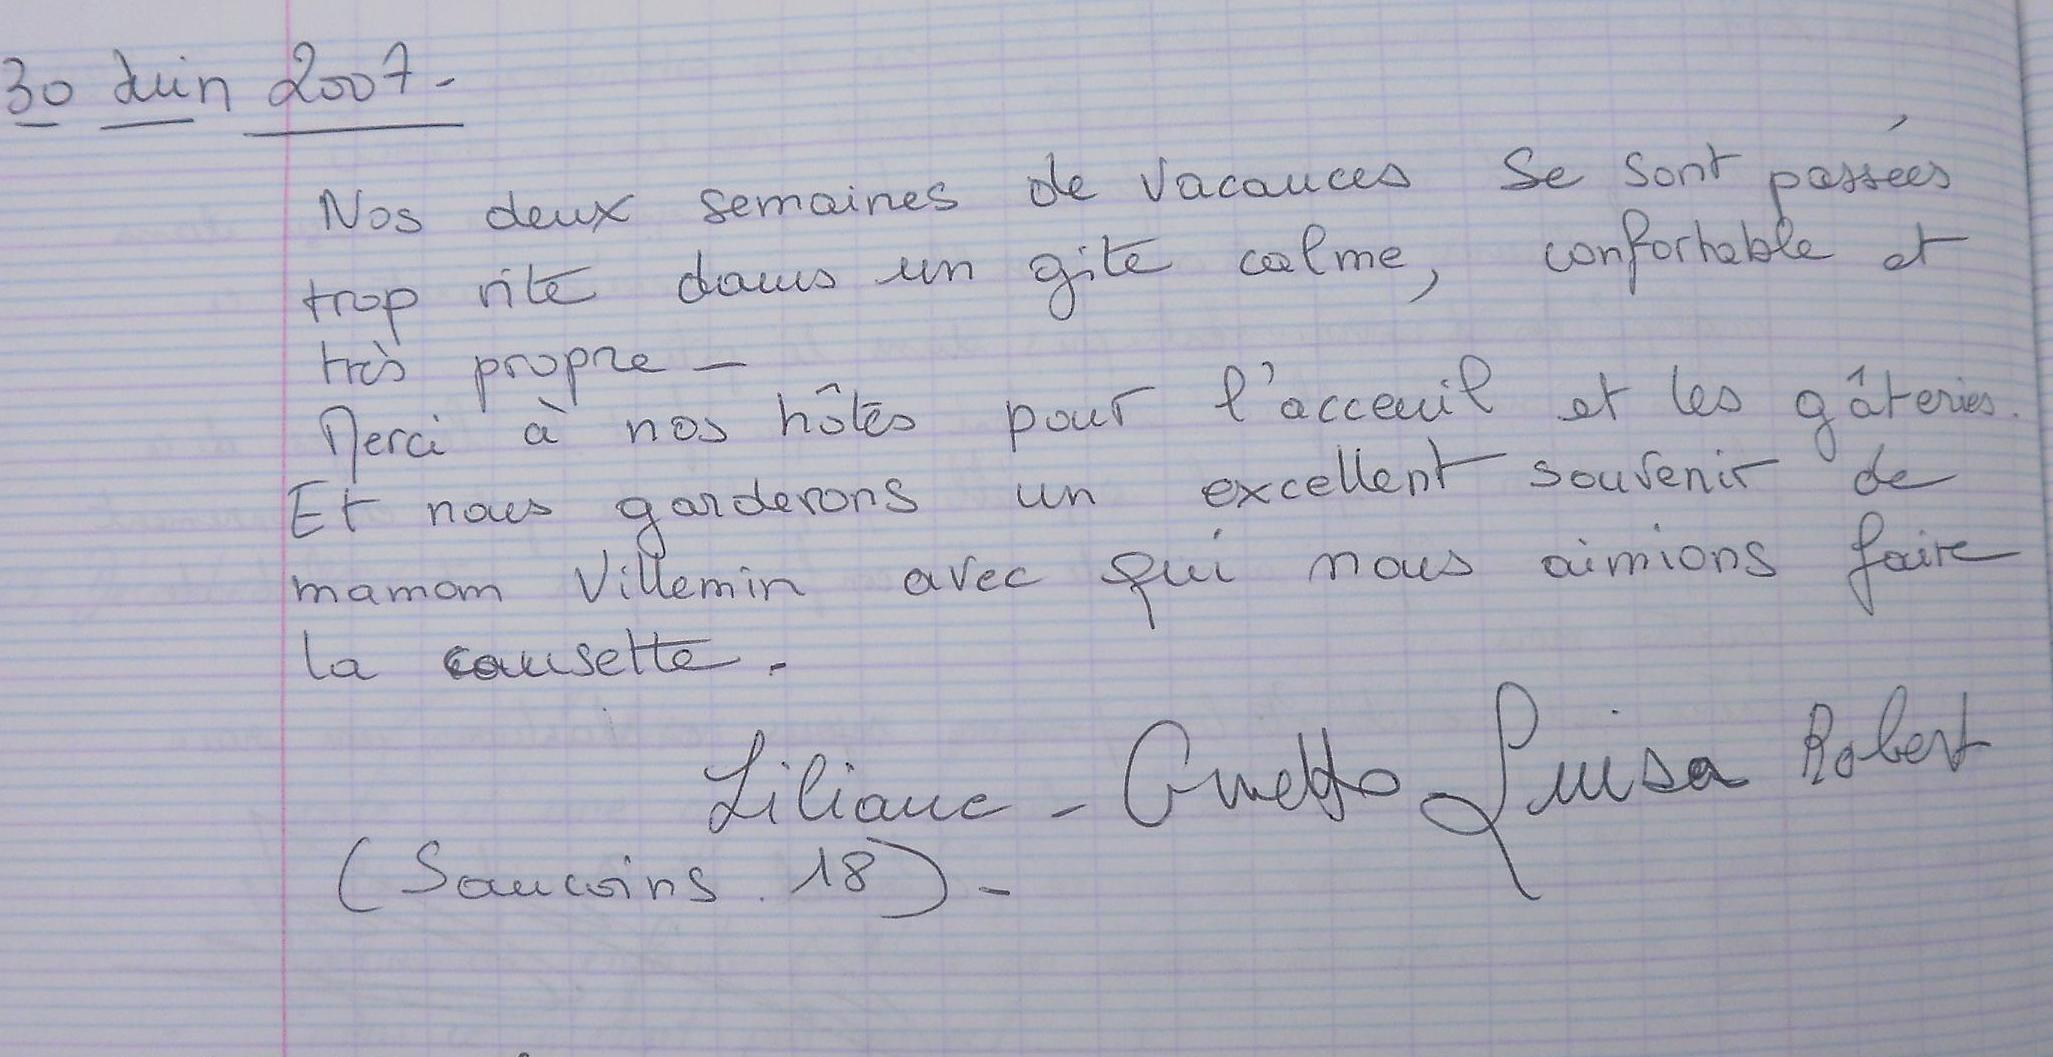 30 Juin 2007-
Nos deux semaines de vacances se sont passées
trop vite dans un gite calme, confortable et
très propre -
Merci à nos hôtes pour l'acceuil et les gâteries.
Et nous garderons un excellent souvenir de
maman Villemin avec qui nous aimions faire
la causette.
Liliane - Luisa Robert
(Sancoins. 18)-